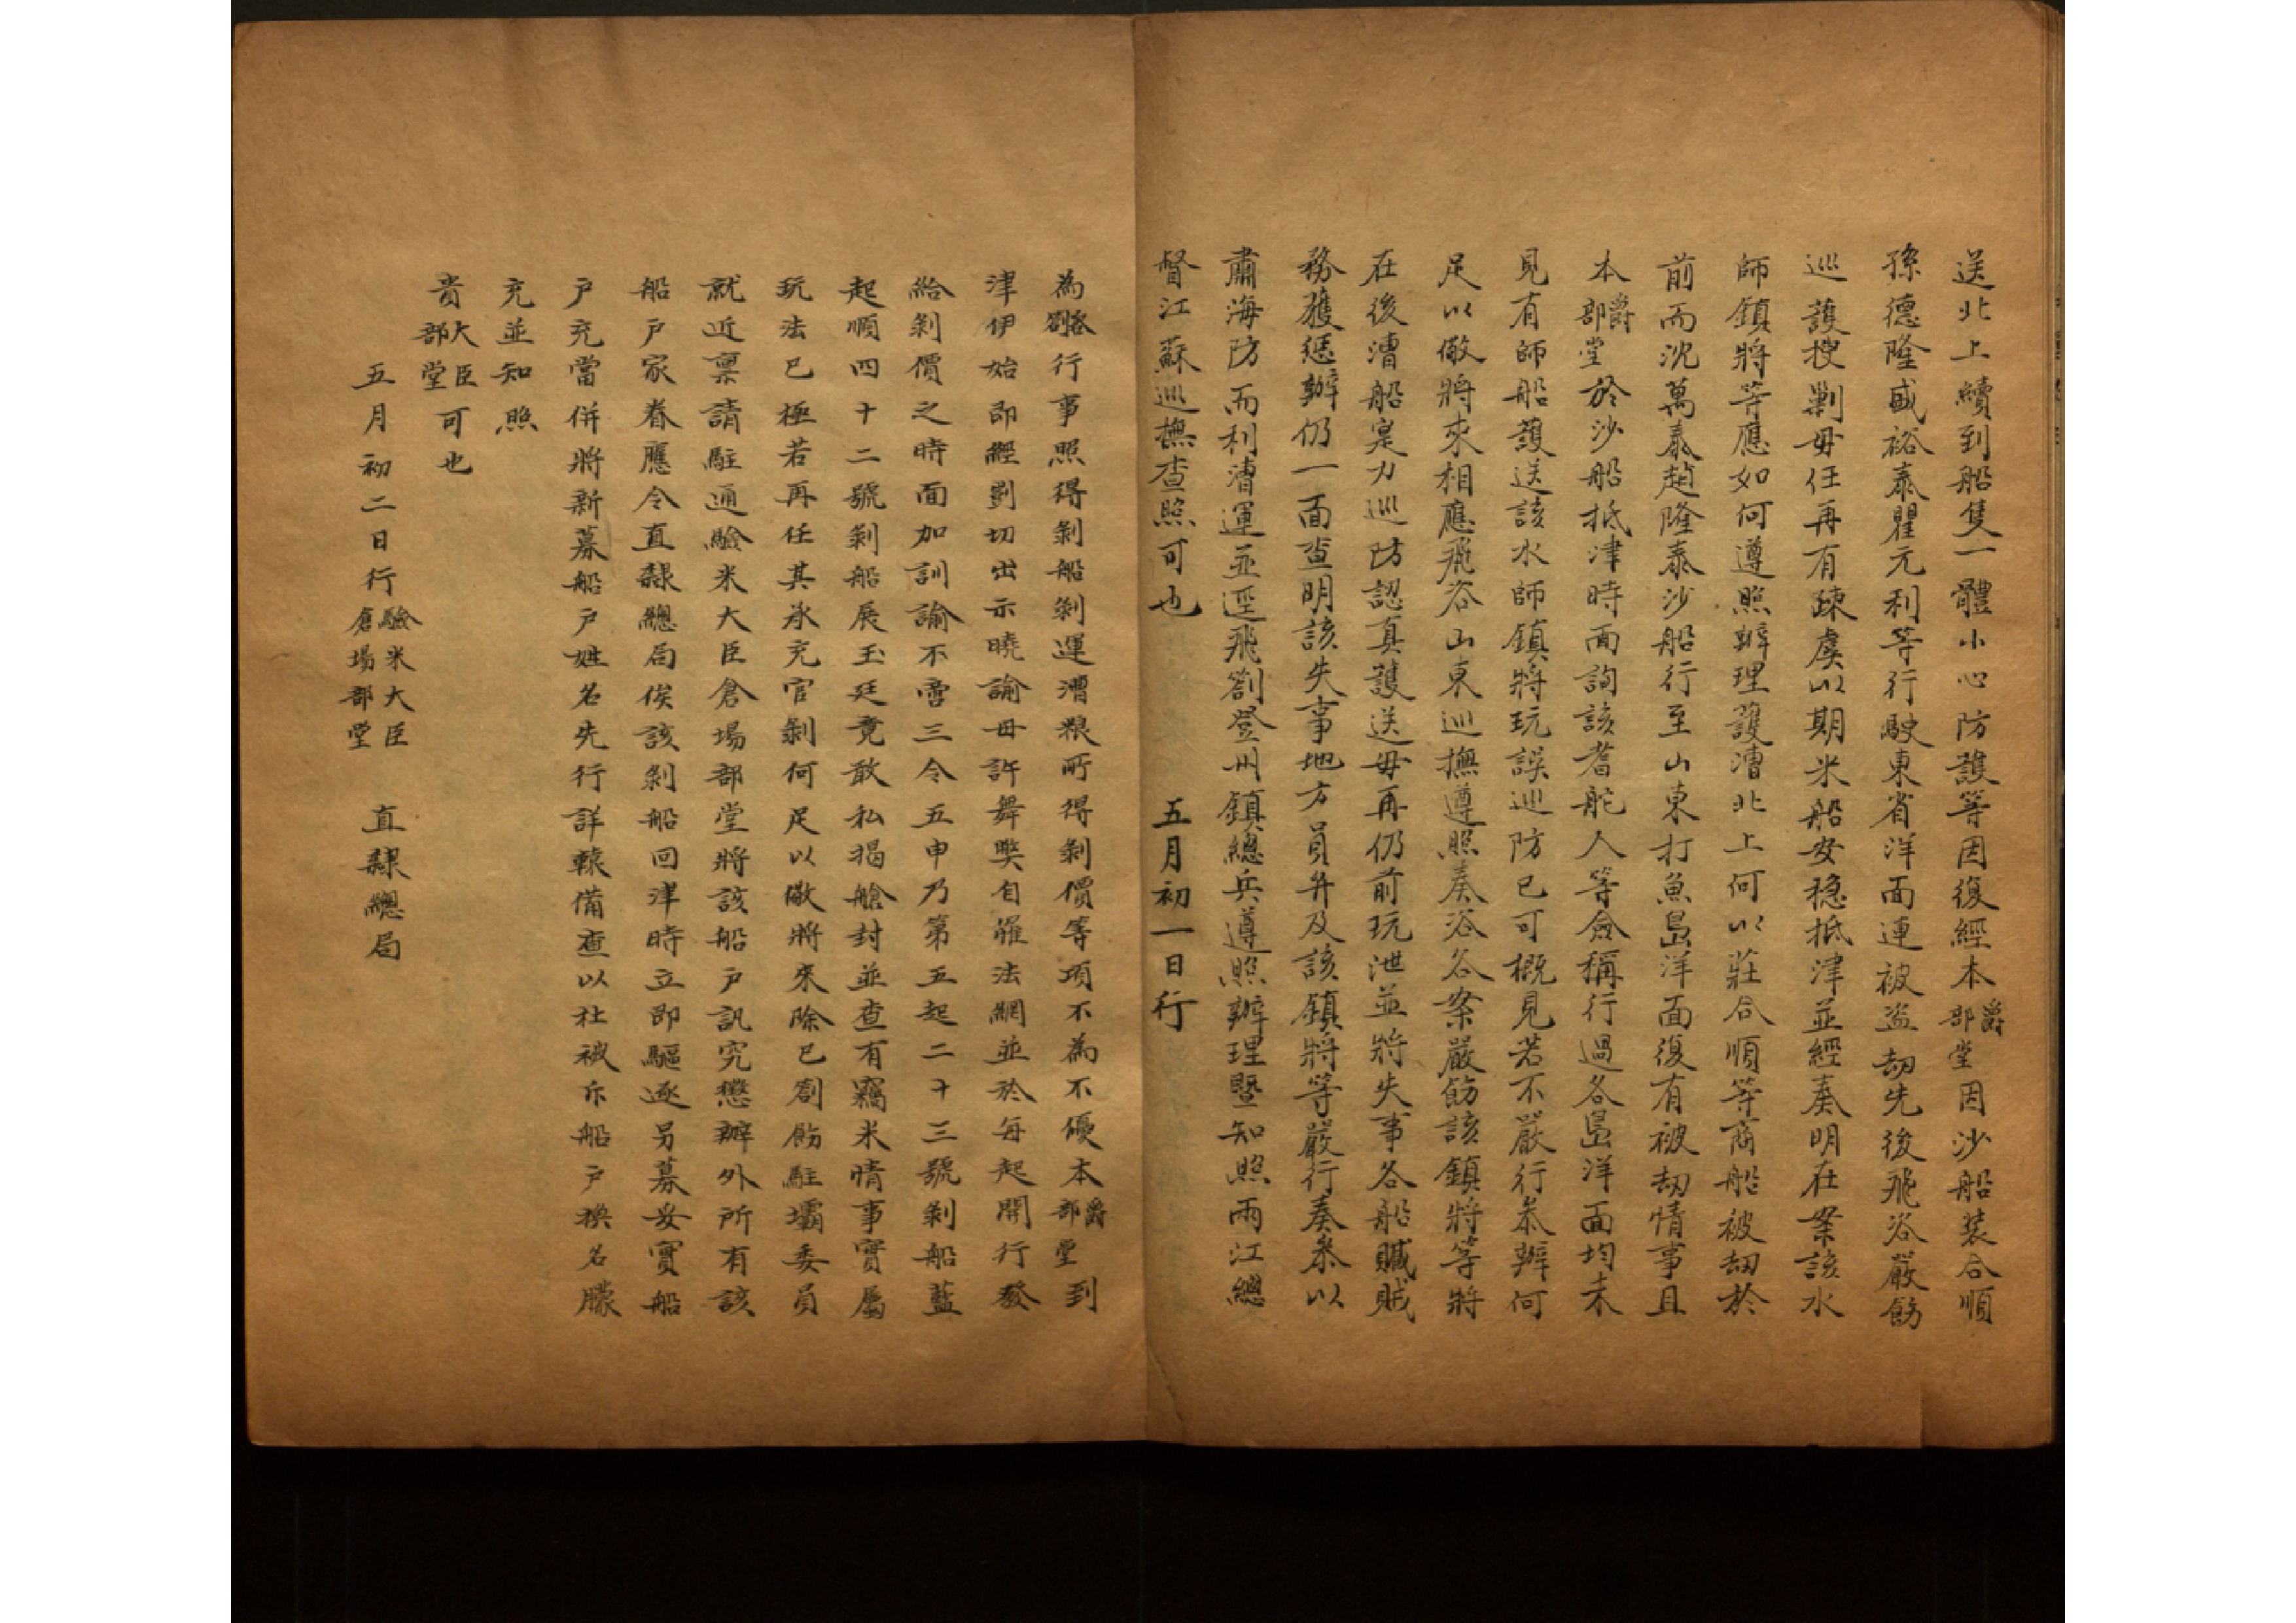 送北上續到船隻一體小心防護等因復經本爵部堂因沙船裝合順
孫德隆盛裕泰瞿元利等行駛東省洋面連被盜刼先後飛咨嚴飭
巡護搜剿毋任再有疎虞以期米船安穩抵津並經奏明在案該水
師鎮將等應如何遵照辦理護漕北上何以莊合順等商船被刼於
前而沈萬泰趙隆泰沙船行至山東打魚島洋面復有被刼情事且
本爵部堂於沙船抵津時面詢該耆舵人等僉稱行過各島洋面均未
見有師船護送該水師鎮將玩誤巡防已可概見若不嚴行叅辦何
足以儆將來相應飛咨山東巡撫遵照奏咨各案嚴飭該鎮將等將
在後漕船寔力巡防認真護送毋再仍前玩泄並將失事各船贓賊
務獲懲辦仍一面查明該失事地方員弁及該鎮將等嚴行奏叅以
肅海防而利漕運並逕飛劄登州鎮總兵遵照辦理暨知照兩江總
督江蘇巡撫查照可也 五月初一日行
為咨劄行事照得剝船剝運漕糧所得剝價等項不為不優本爵部堂到
津伊始即經剴切出示曉諭毋許舞獘自罹法網並於每起開行發
給剝價之時面加訓諭不啻三令五申乃第五起二十三號剝船藍
起順四十二號剝船展玉廷竟敢私揭艙封並查有竊米情事實屬
玩法已極若再任其承充官剝何足以儆將來除已劄飭駐壩委員
就近稟請駐通驗米大臣倉場部堂將該船戶訊究懲辦外所有該
船戶家眷應令直隸總局俟該剝船回津時立即驅逐另募妥實船
戶充當併將新募船戶姓名先行詳轅備查以杜被斥船戶換名朦
充並知照
貴大臣部堂可也
五月初二日行驗米大臣倉場部堂 直隸總局